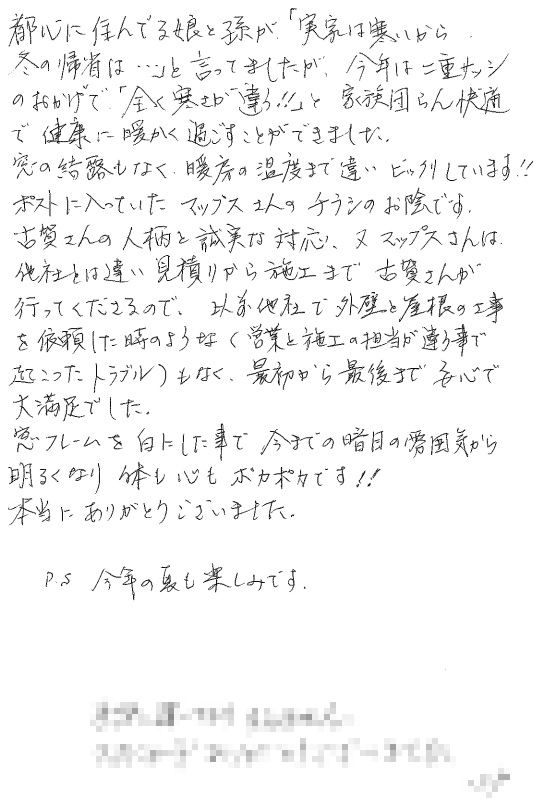 都心に住んでる娘と孫が、「実家は寒いから
冬の帰省は…」と言ってましたが、今年は二重サッシ
のおかげで「全く寒さが違う!!」と 家族団らん快適
で健康に暖かく過ごすことができました。
窓の結露もなく、暖房の温度まで違い ビックリしています!!
ポストに入っていた マップスさんの チラシのお陰です。
古賀さんの人柄と誠実な対応、又マップスさんは
他社とは違い見積りから施工まで古賀さんが
行ってくださるので、以前他社で外壁と屋根の工事
を依頼した時のような(営業と施工の担当が違う事で
起こったトラブル)もなく、最初から最後まで安心で
大満足でした。
窓フレームを白にした事で今までの暗目の雰囲気から
明るくなり 体も心もポカポカです!!
本当にありがとうございました。
P.S 今年の夏も楽しみです.